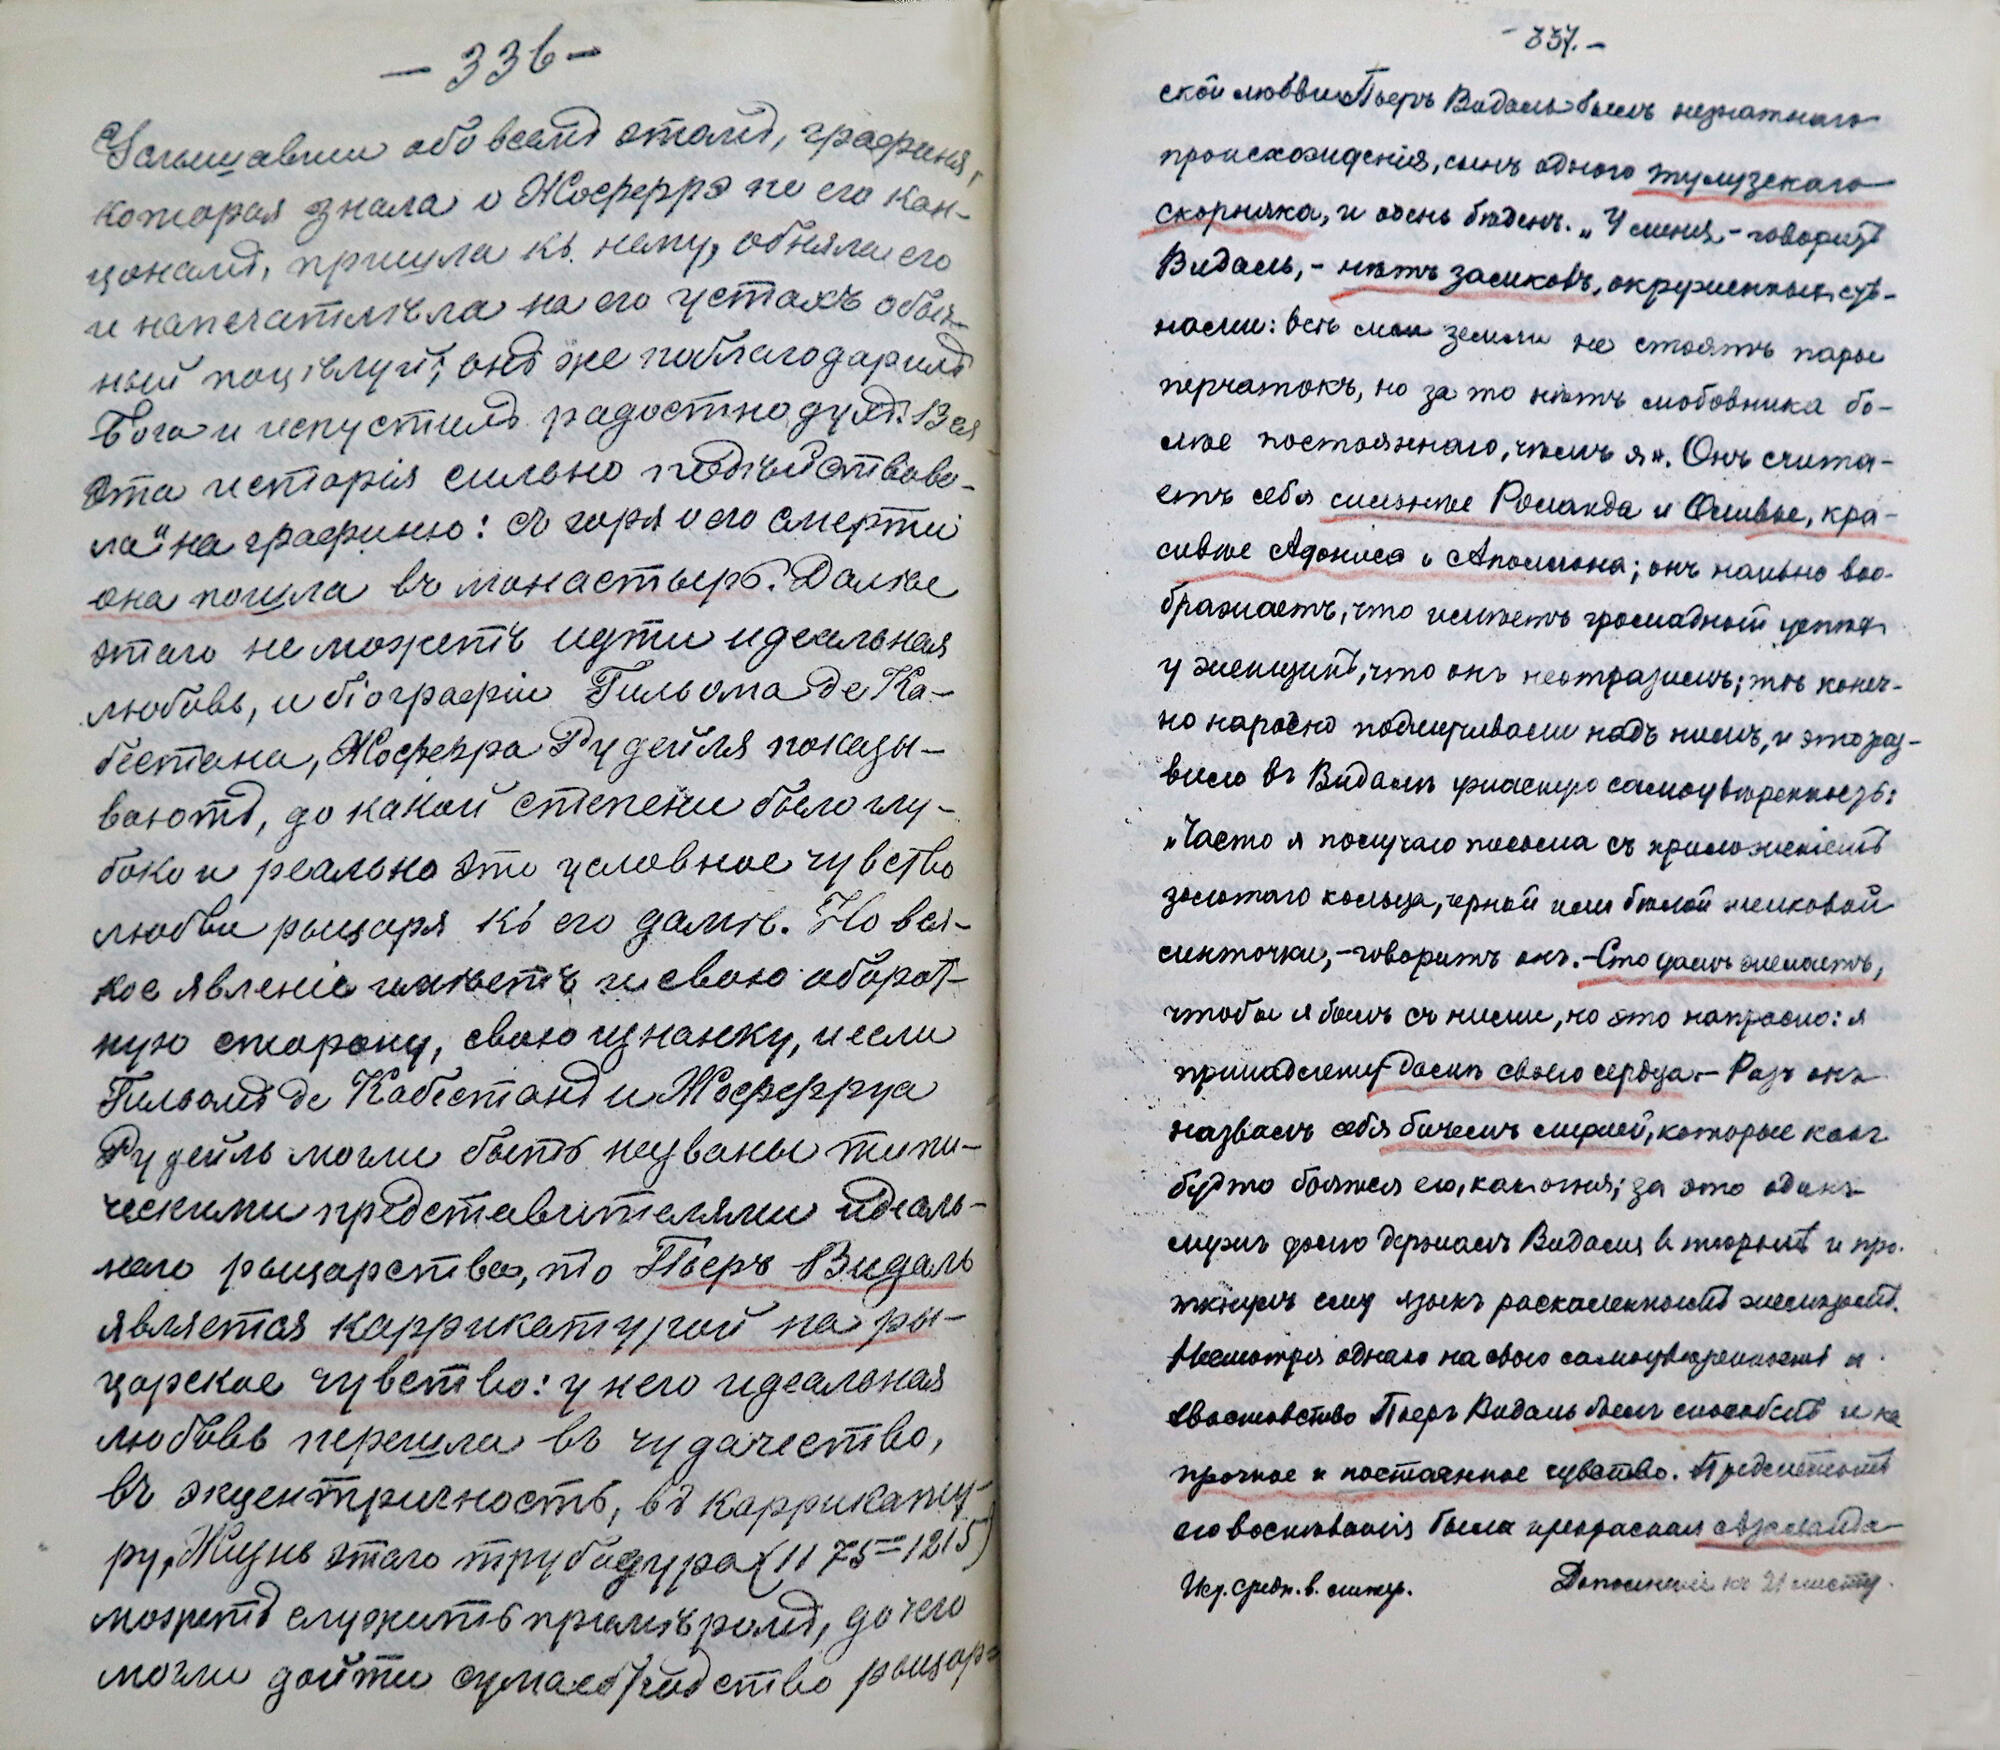 — 336 —
Услышавши обо всемъ этомъ, графиня,
которая знала о Жофферрэ по его кан-
цонамъ, пришла къ нему, обняла его
и напечатлѣла на его устахъ обыч-
ный поцѣлуй; онъ же поблагодарилъ
Бога и испустилъ радостно духъ. Вся
эта исторія сильно подѣйствова-
ла на графиню: съ горя о его смерти
она пошла въ монастырь. Далѣе
этаго не можетъ идти идеальная
любовь, и біографіи Гильома де Ка-
бестана, Жоффера Рудейля показы-
ваютъ, до какой степени было глу-
боко и реально это условное чувство
любви рыцаря къ его дамѣ. Но вся-
кое явленіе имѣетъ и свою оборот-
ную сторону, свою изнанку, и если
Гильомъ де Кабестанъ и Жофферруа
Рудейль могли быть названы типи-
ческими представителями идеаль-
наго рыцарства, то Пьеръ Видаль
является каррикатурой на ры-
царское чувство: у него идеальная
любовь перешла въ чудачество,
въ эксцентричность, въ каррикату-
ру. Жизнь этаго трубадура (1175=1215)
можетъ служить примѣромъ, до чего
могли дойти сумасбродство рыцар-
— 337. —
ской любви. Пьеръ Видаль былъ незнатнаго
происхожденія, сынъ одного тулузскаго
скорняка, и очень бѣденъ. „У меня, — говоритъ
Видаль, — нѣтъ замковъ, окруженныхъ стѣ-
нами: всѣ мои земли не стоятъ пары
перчатокъ, но за то нѣтъ любовника бо-
лѣе постояннаго, чѣмъ я". Онъ счита-
етъ себя сильнѣе Роланда и Оливье, кра-
сивѣе Адониса и Аполлона; онъ наивно воо-
бражаетъ, что имѣетъ громадный успѣхъ
у женщинъ, что онъ неотразимъ; тѣ конеч-
но нарочно подшучивали надъ нимъ, и это раз-
вило въ Видалѣ фиаскую самоувѣренность:
„Часто я получаю письма съ приложеніемъ
золотаго кольца, черной или бѣлой шелковой
ленточки, — говоритъ онъ. — Сто дамъ желаетъ,
чтобы я былъ съ ними, но это напрасно: я
принадлежу дамѣ своего сердца. — Разъ онъ
назвалъ себя бичемъ мужей, которые какъ
будто боятся его, какъ огня; за это одинъ
мужъ долго держалъ Видаля въ тюрьмѣ и про-
ткнулъ ему языкъ раскаленнымъ желѣзомъ.
Несмотря однако на свою самоувѣренность и
хвастовство Пьеръ Видаль былъ способенъ и на
прочное и постоянное чувство. Предметомъ
его воспѣванія была прекрасная Азалаида
Ист. средн. в. литер. Дополненіе къ 21 листу.